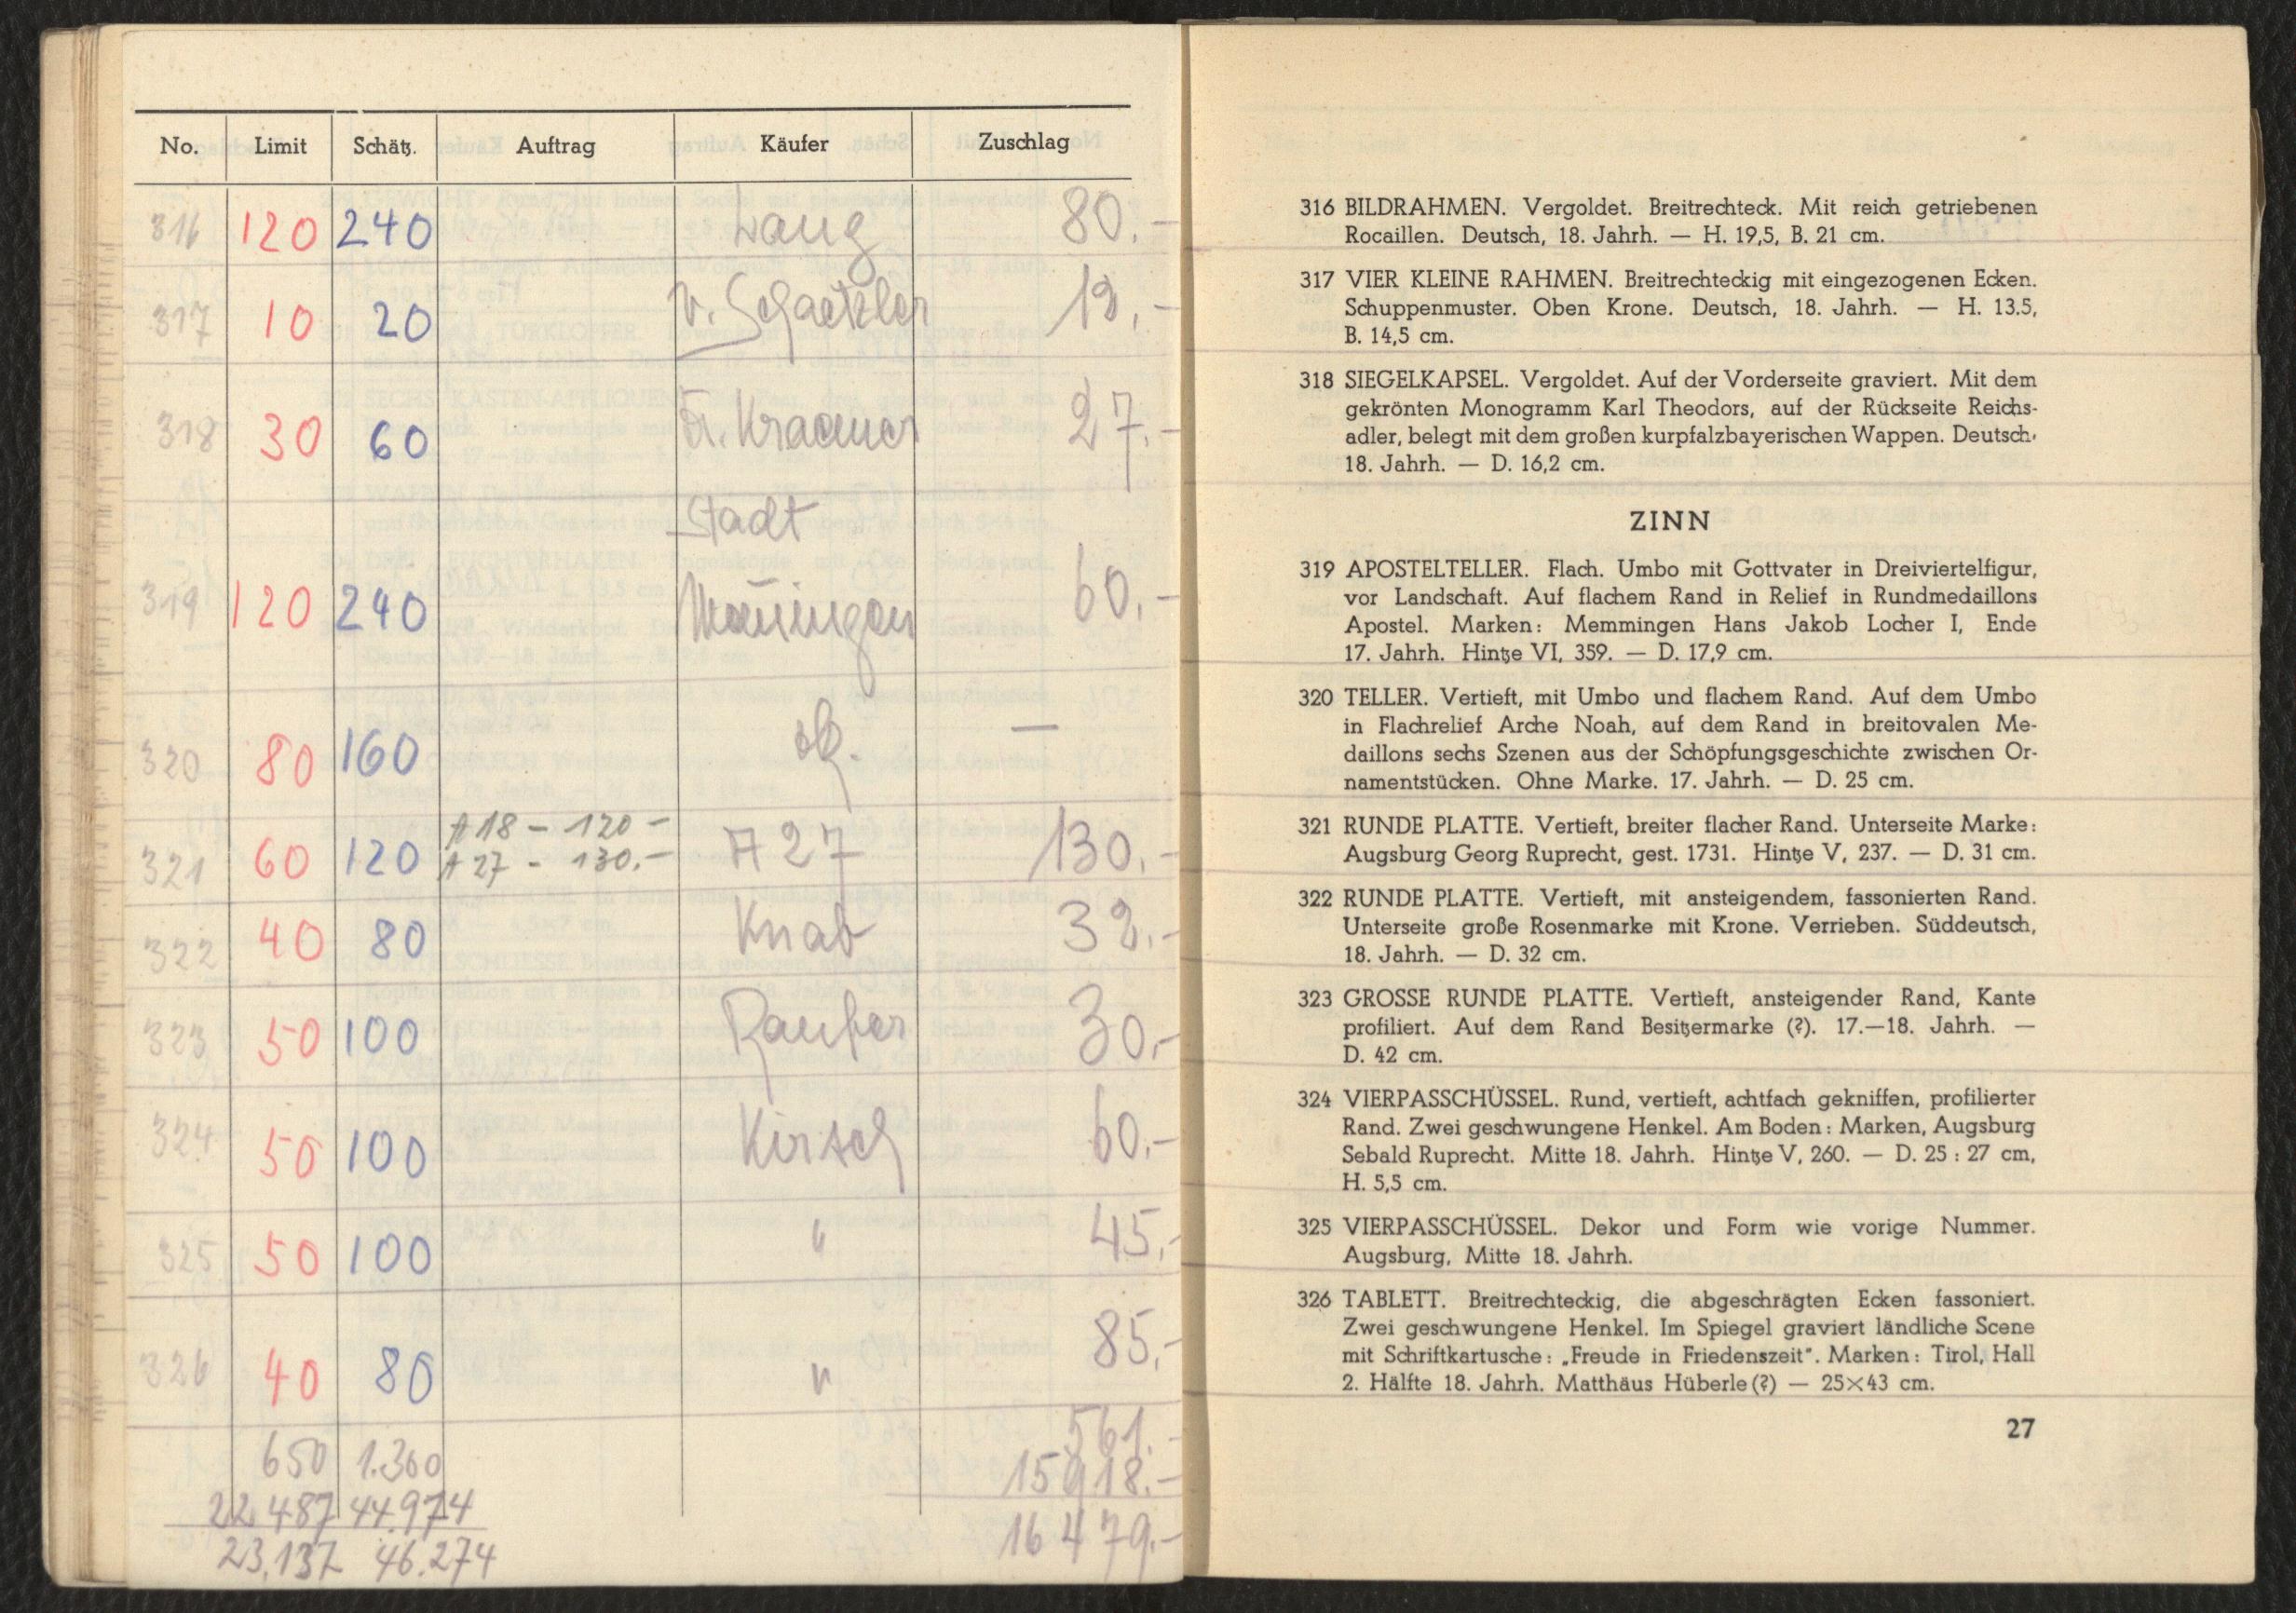 No. Limit Schätz. Auftrag Käufer Zuschlag
316 120 240 Lang 80.-
317 10 20 v. Schaetzler 12.-
318 30 60 Kraemer 27.-
Stadt
319 120 240 Mem̄ingen 60.-
320 80 160 —
A 18 - 120 -
321 60 120 A 27 - 130.- A 27 130.-
322 40 80 Knab 32.-
323 50 100 30.-
324 50 100 Kirsch 60.-
325 50 100 " 45.-
326 40 80 " 85.-
650 1.300 561.-
22.487 44.974 15918.-
23.137 46.274 16479.-
316 BILDRAHMEN. Vergoldet. Breitrechteck. Mit reich getriebenen
Rocaillen. Deutsch, 18. Jahrh. — H. 19,5, B. 21 cm.
317 VIER KLEINE RAHMEN. Breitrechteckig mit eingezogenen Ecken.
Schuppenmuster. Oben Krone. Deutsch, 18. Jahrh. — H. 13.5,
B. 14,5 cm.
318 SIEGELKAPSEL. Vergoldet. Auf der Vorderseite graviert. Mit dem
gekrönten Monogramm Karl Theodors, auf der Rückseite Reichs-
adler, belegt mit dem großen kurpfalzbayerischen Wappen. Deutsch,
18. Jahrh. — D. 16,2 cm.
ZINN
319 APOSTELTELLER. Flach. Umbo mit Gottvater in Dreiviertelfigur,
vor Landschaft. Auf flachem Rand in Relief in Rundmedaillons
Apostel. Marken: Memmingen Hans Jakob Locher I, Ende
17. Jahrh. Hintze VI, 359. — D. 17,9 cm.
320 TELLER. Vertieft, mit Umbo und flachem Rand. Auf dem Umbo
in Flachrelief Arche Noah, auf dem Rand in breitovalen Me-
daillons sechs Szenen aus der Schöpfungsgeschichte zwischen Or-
namentstücken. Ohne Marke. 17. Jahrh. — D. 25 cm.
321 RUNDE PLATTE. Vertieft, breiter flacher Rand. Unterseite Marke:
Augsburg Georg Ruprecht, gest. 1731. Hintze V, 237. — D. 31 cm.
322 RUNDE PLATTE. Vertieft, mit ansteigendem, fassonierten Rand.
Unterseite große Rosenmarke mit Krone. Verrieben. Süddeutsch,
18. Jahrh. — D. 32 cm.
323 GROSSE RUNDE PLATTE. Vertieft, ansteigender Rand, Kante
profiliert. Auf dem Rand Besitzermarke (?). 17.—18. Jahrh. —
D. 42 cm.
324 VIERPASSCHÜSSEL. Rund, vertieft, achtfach gekniffen, profilierter
Rand. Zwei geschwungene Henkel. Am Boden: Marken, Augsburg
Sebald Ruprecht. Mitte 18. Jahrh. Hintze V, 260. — D. 25 : 27 cm,
H. 5,5 cm.
325 VIERPASSCHÜSSEL. Dekor und Form wie vorige Nummer.
Augsburg, Mitte 18. Jahrh.
326 TABLETT. Breitrechteckig, die abgeschrägten Ecken fassoniert.
Zwei geschwungene Henkel. Im Spiegel graviert ländliche Scene
mit Schriftkartusche: „Freude in Friedenszeit". Marken: Tirol, Hall
2. Hälfte 18. Jahrh. Matthäus Hüberle (?) — 25×43 cm.
27